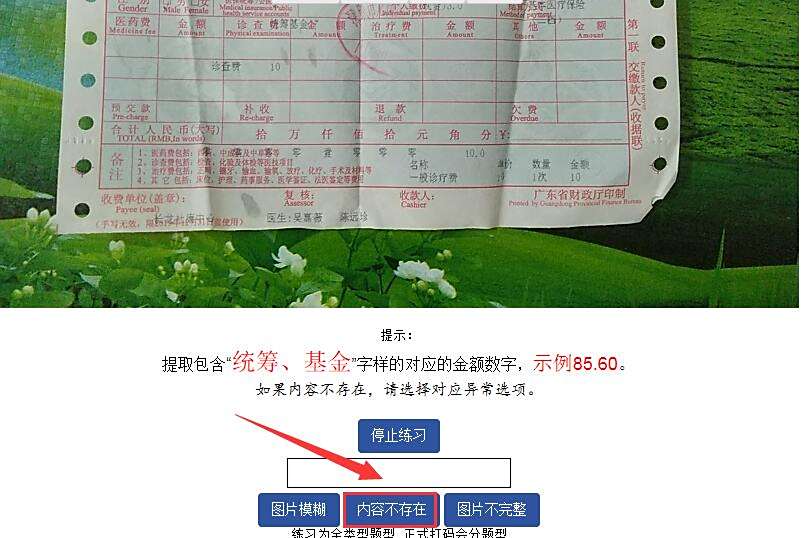 Gender Male Female Medical insurance/Public health service accounts Individual payment 医疗保险
医药费 金额 诊查费 统筹基金 金额 治疗费 金额 其他 金额
Medicine fee Amount Physical examination Amount Treatment Amount Others Amount
诊查费 10
预交款 补收 退款 欠费
Pre-charge Re-charge Refund Overdue
合计人民币(大写) 拾 万 仟 佰 拾 元 角 分 ¥:
TOTAL (RMB,In words) 零 零 零 壹 零 零 零 10.0
备注
2、诊查费包括:检查、化验及体检等医技项目
名称 单价 数量 金额
一般诊疗费 10 1次 10
收费单位(盖章): 复核: 收款人: 广东省财政厅印制
Payee (seal) Assessor Cashier Printed by Guangdong Provincial Finance Bureau
医生:吴嘉蓉 陈远珍
第一联 交缴款人(收据联)
提示:
提取包含“统筹、基金”字样的对应的金额数字，示例85.60。
如果内容不存在，请选择对应异常选项。
停止练习
图片模糊 内容不存在 图片不完整
练习为全类型题型，正式打码会分题型